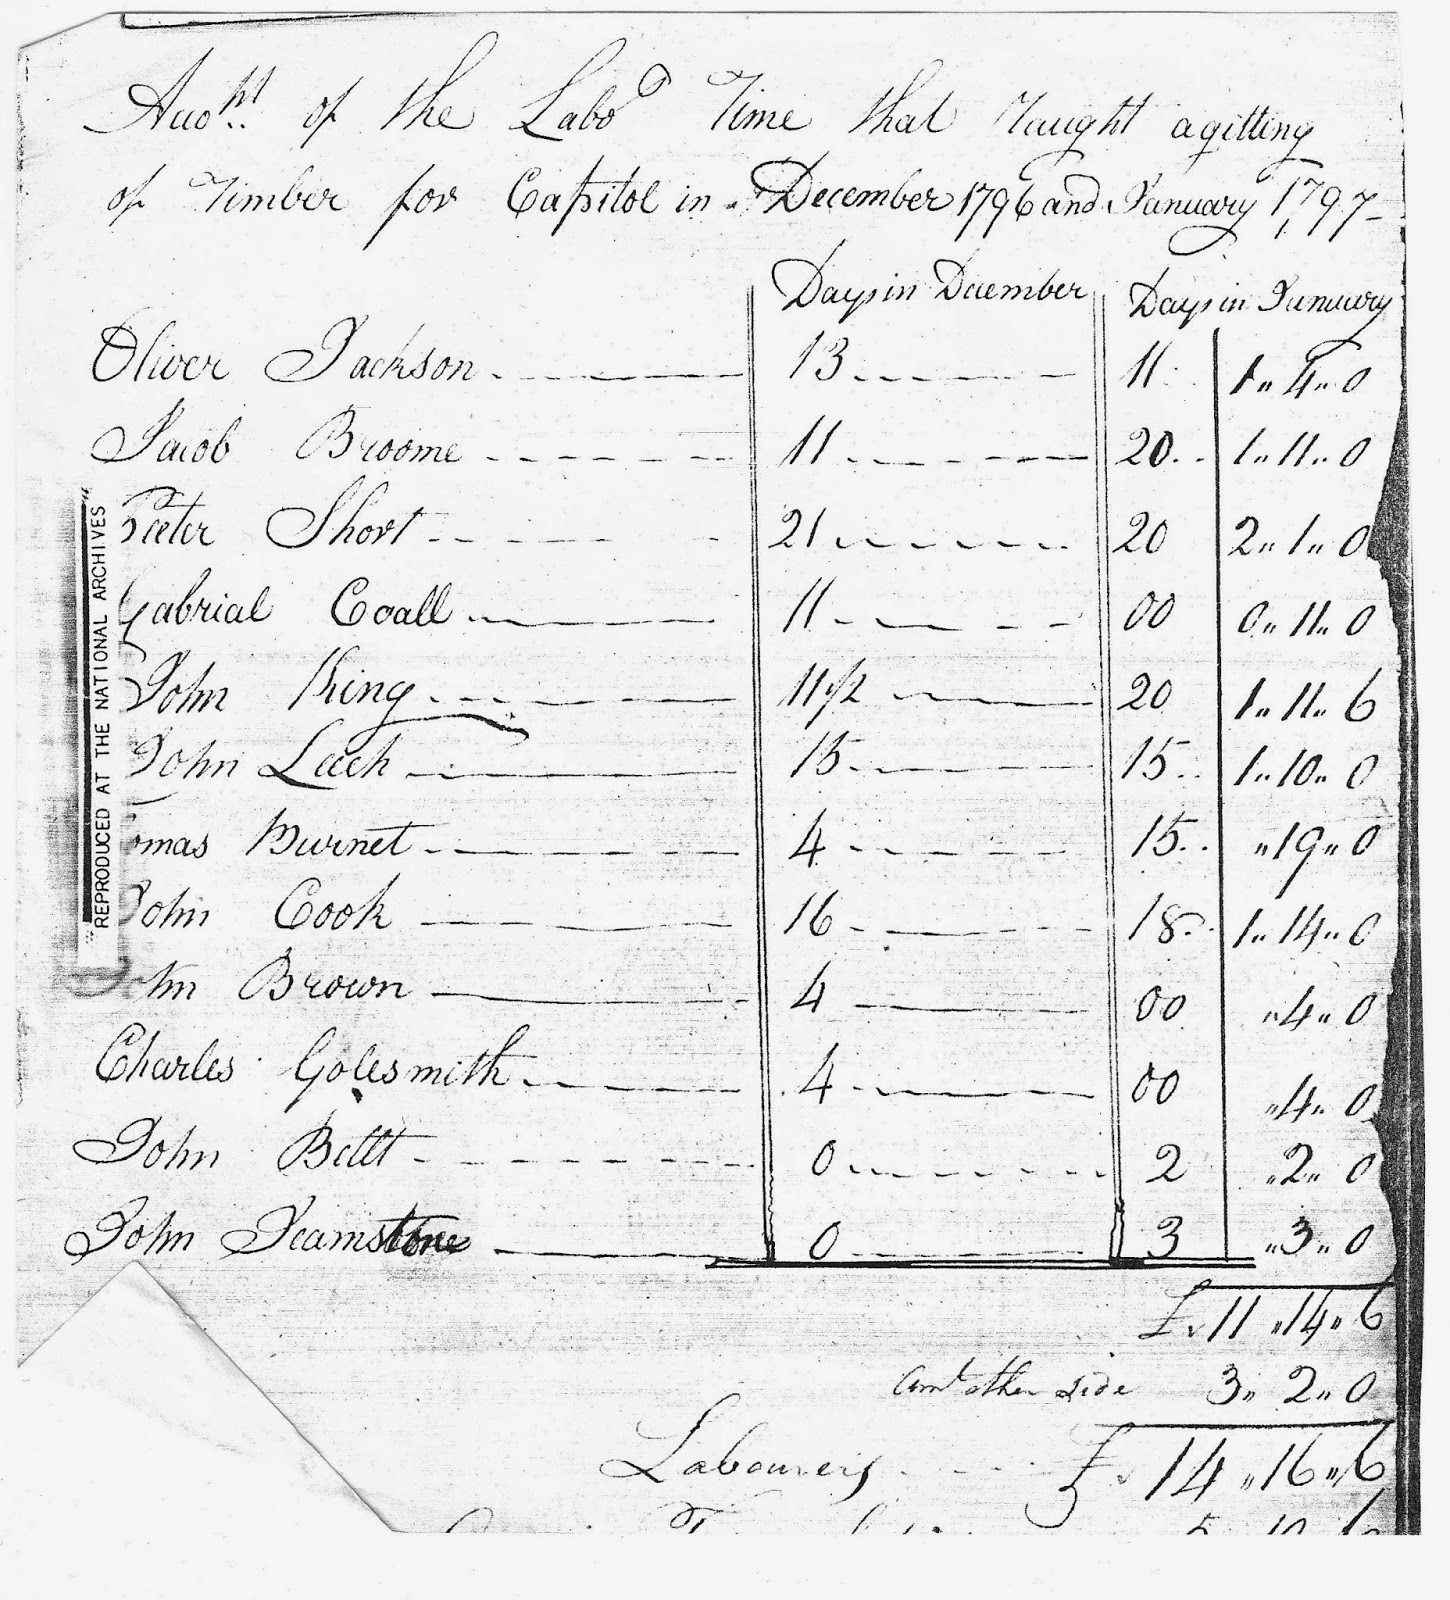 Acco.ht of the Labo.r Time that Taught agitting
of Timber for Capitol in December 1796 and January 1797
Days in December Days in January
Oliver Jackson 13 11 1 „ 4 „ 0
Jacob Broome 11 20 1 „ 11 „ 0
Peeter Short 21 20 2 „ 1 „ 0
Gabrial Coall 11 00 0 „ 11 „ 0
John King 11 1/2 20 1 „ 11 „ 6
John Leach 15 15 1 „ 10 „ 0
omas Burnet 4 15 „ 19 „ 0
John Cook 16 18 1 „ 14 „ 0
ohn Brown 4 00 „ 4 „ 0
Charles Golesmith 4 00 „ 4 „ 0
John Bellt 0 2 „ 2 „ 0
John Jeamstone 0 3 „ 3 „ 0
£ 11 „ 14 „ 6
Amt other side 3 „ 2 „ 0
Labourers £ 14 „ 16 „ 6
"REPRODUCED AT THE NATIONAL ARCHIVES"